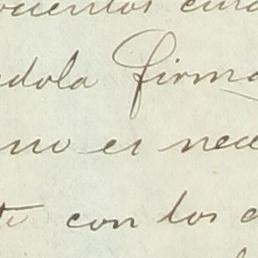 cuentos cua
dola firma
no es nece
te con los c